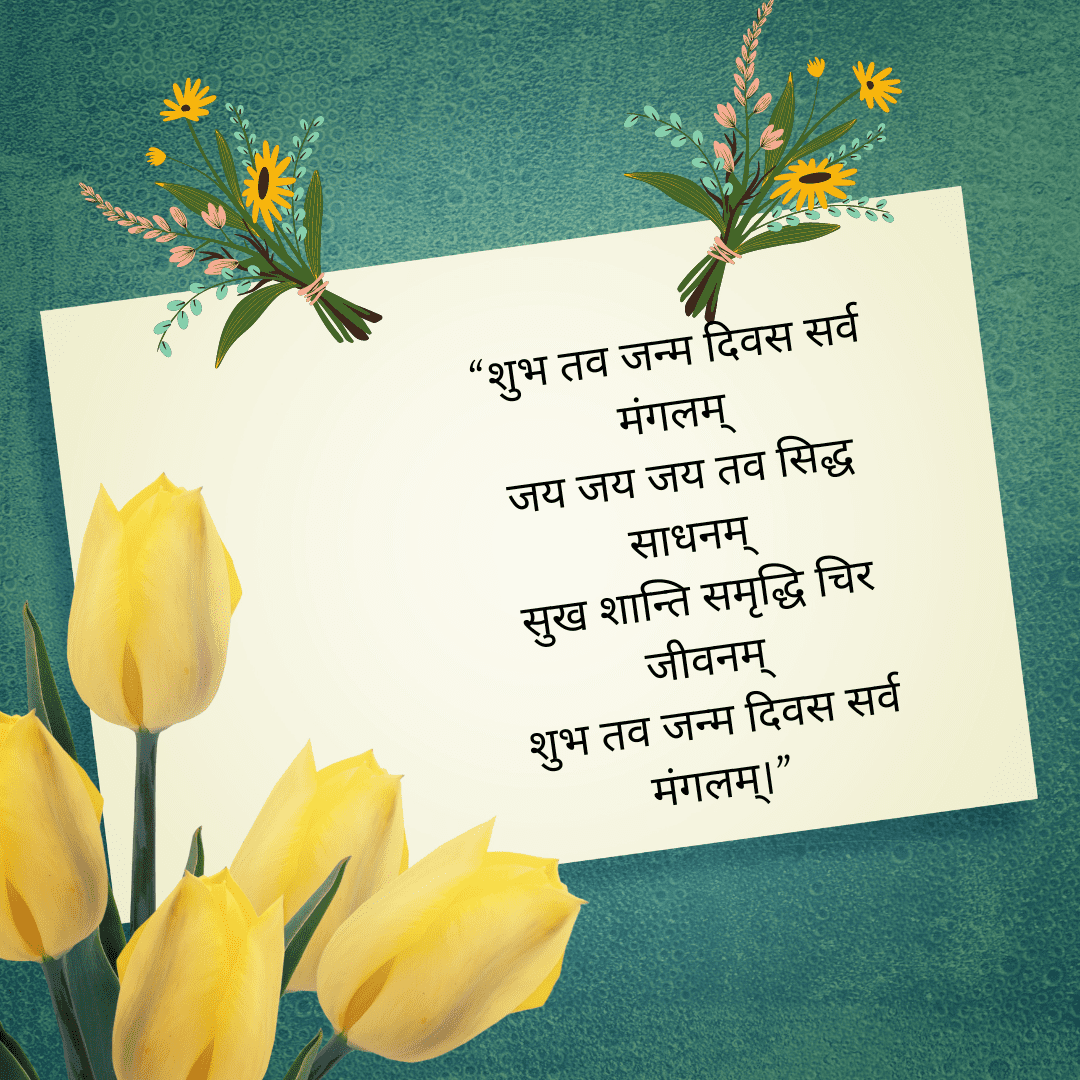 “शुभ तव जन्म दिवस सर्व
मंगलम्
जय जय जय तव सिद्ध
साधनम्
सुख शान्ति समृद्धि चिर
जीवनम्
शुभ तव जन्म दिवस सर्व
मंगलम्।”